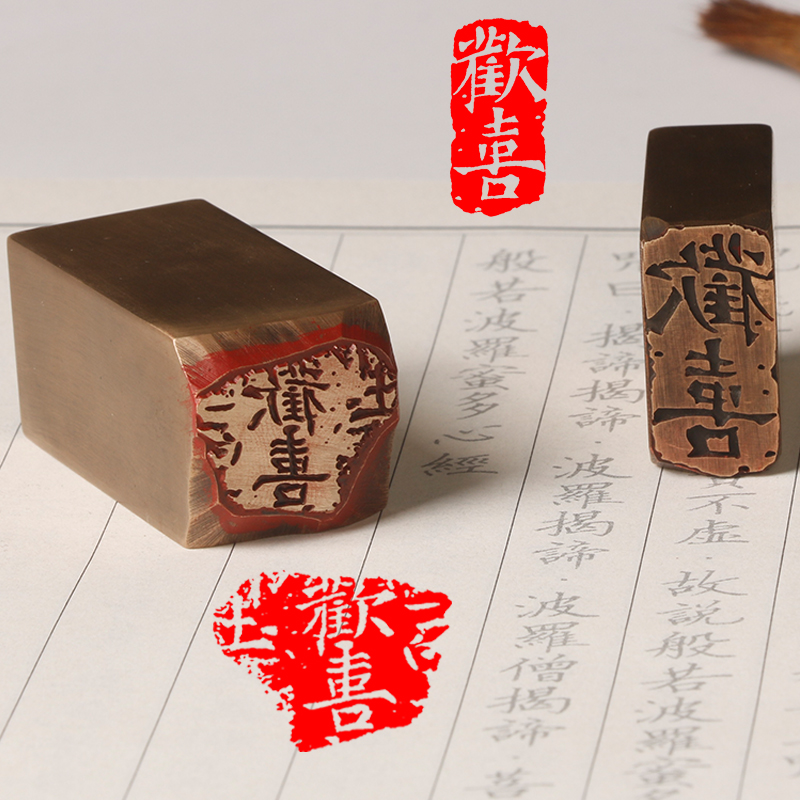 歡喜
歡喜
歡喜
歡喜
實不虛·故說般若波羅蜜多
咒曰·揭諦揭諦·波羅揭諦·波羅僧揭諦·菩
般若波羅蜜多心經